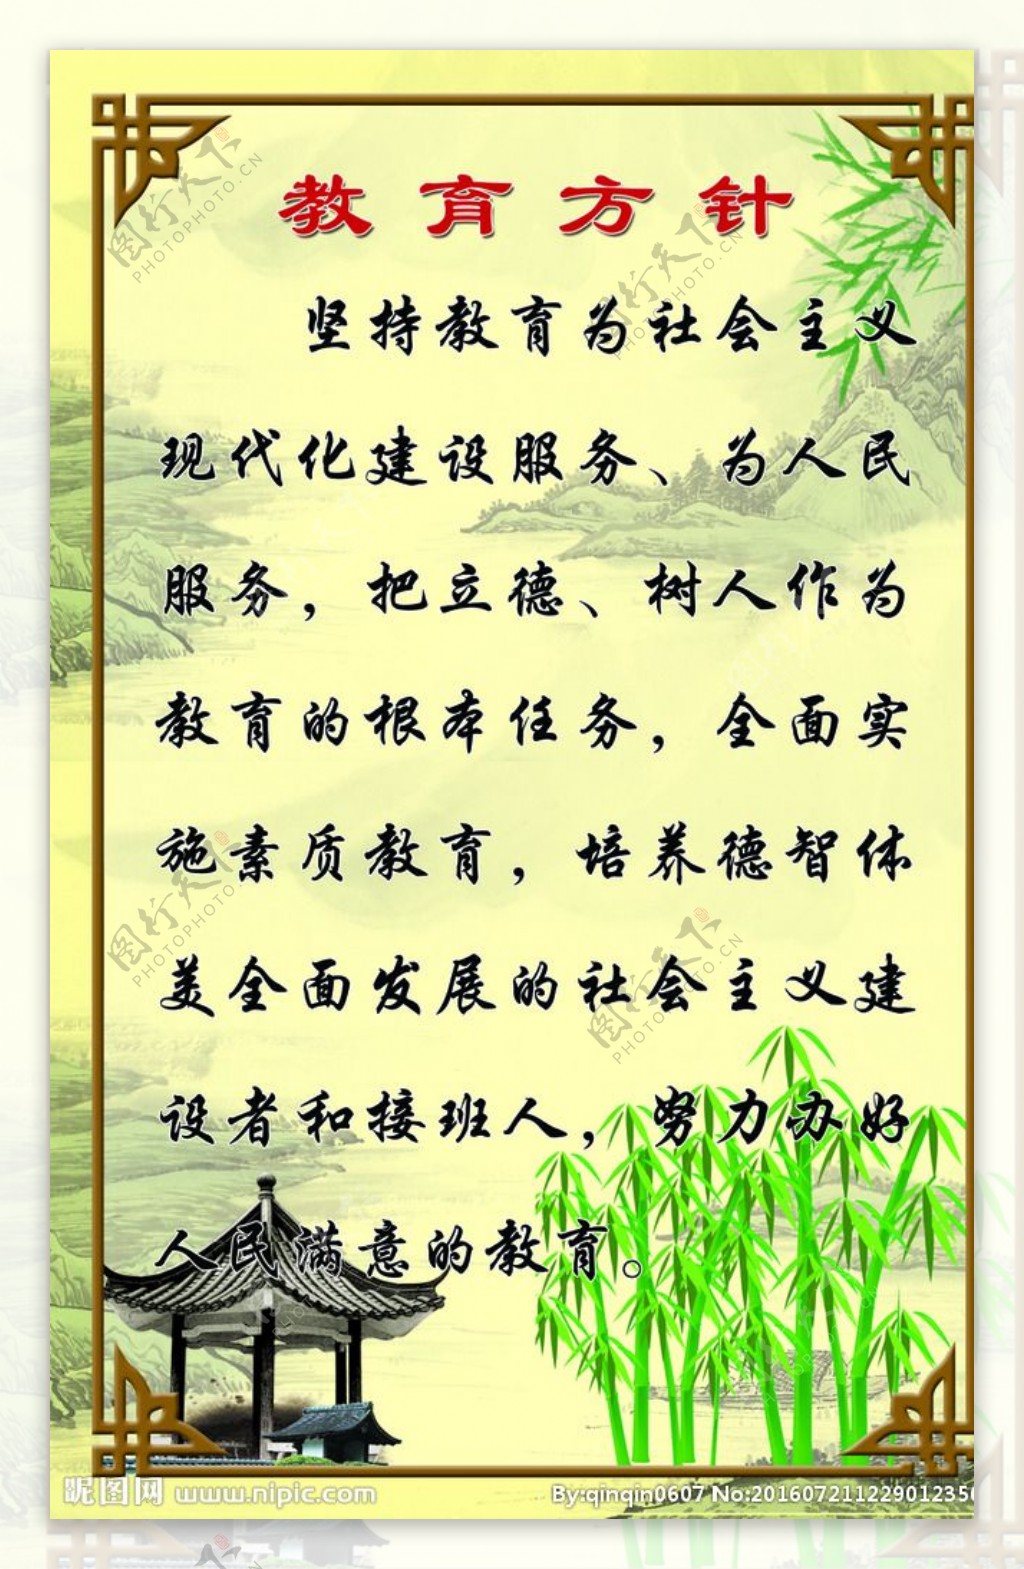 教育方针
坚持教育为社会主义
现代化建设服务、为人民
服务，把立德、树人作为
教育的根本任务，全面实
施素质教育，培养德智体
美全面发展的社会主义建
设者和接班人，努力办好
人民满意的教育。
昵图网 www.nipic.com
By:qinqin0607 No:2016072112290123
图行天下
PHOTOPHOTO.CN